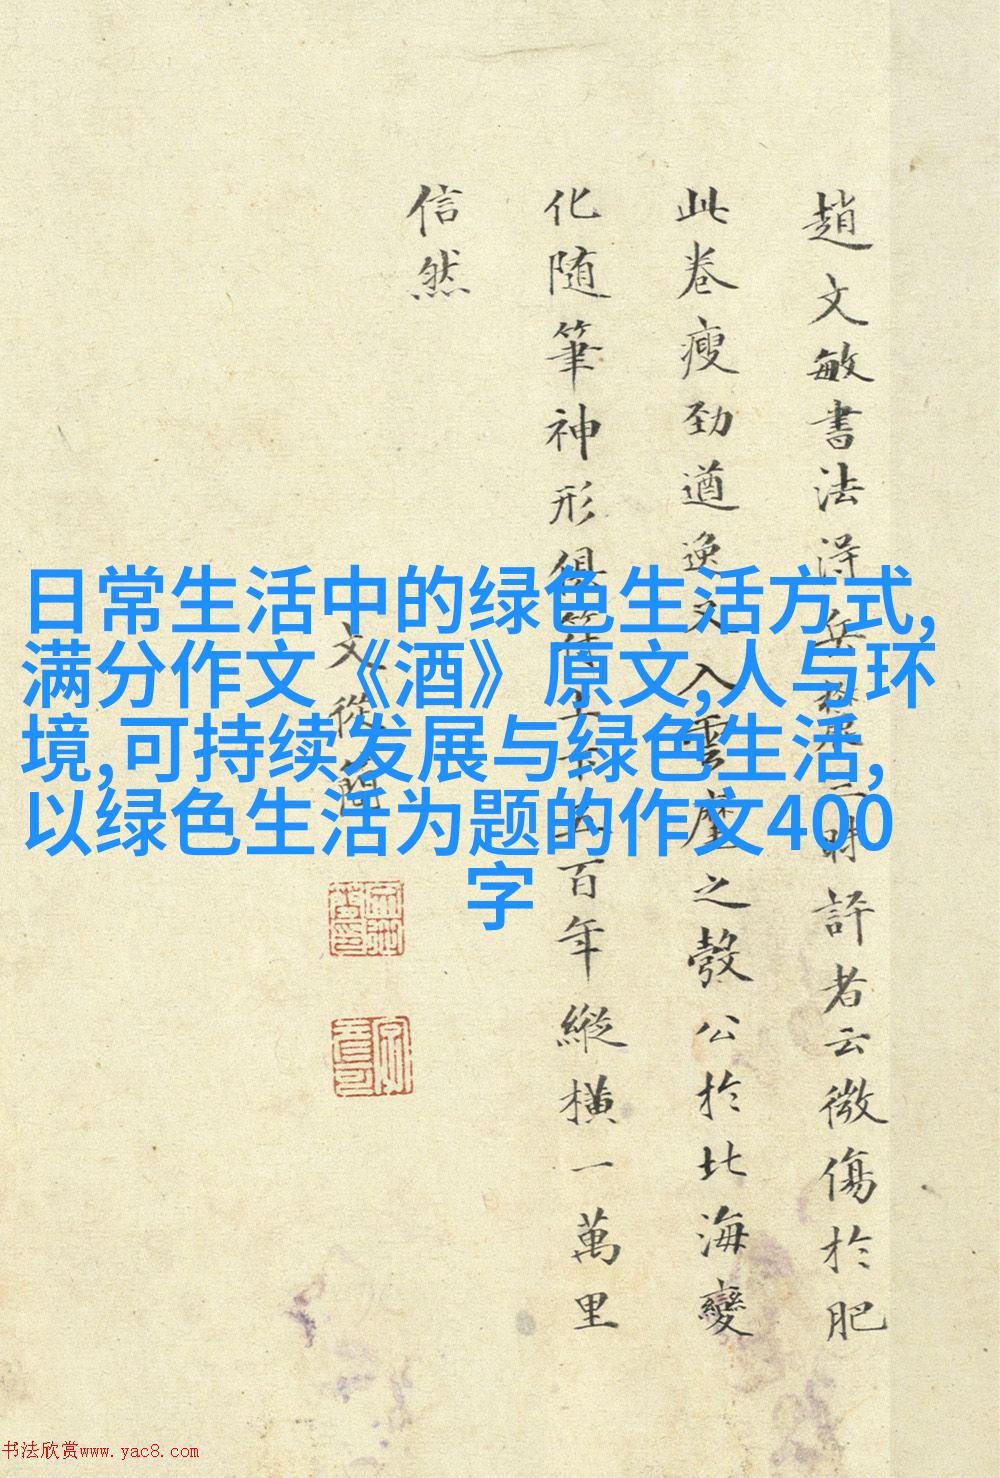 日常生活中的绿色生活方式,
满分作文《酒》原文,人与环
境,可持续发展与绿色生活,
以绿色生活为题的作文400
字
趙文敏書法淂時評者云微傷於肥
此卷瘦劲遒逸又入雲麾之彀公於北海變
化随筆神形俱百年縱橫一萬里
信然
文從簡
书法欣赏www.yac8.com